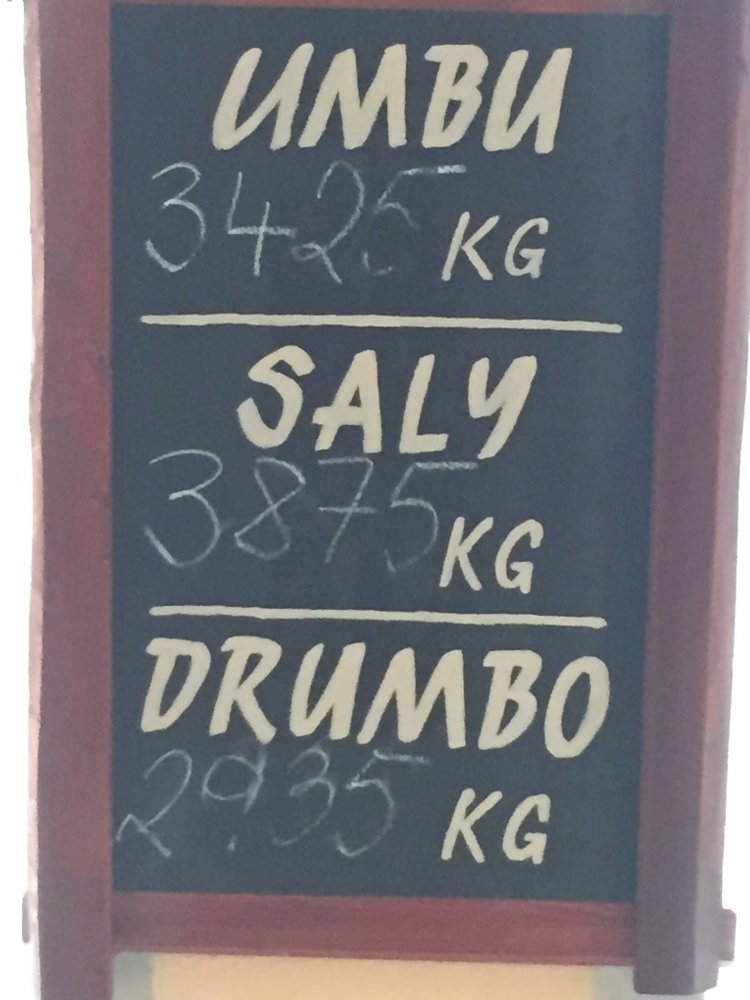 UMBU
3425 KG
SALY
3875 KG
DRUMBO
2935 KG